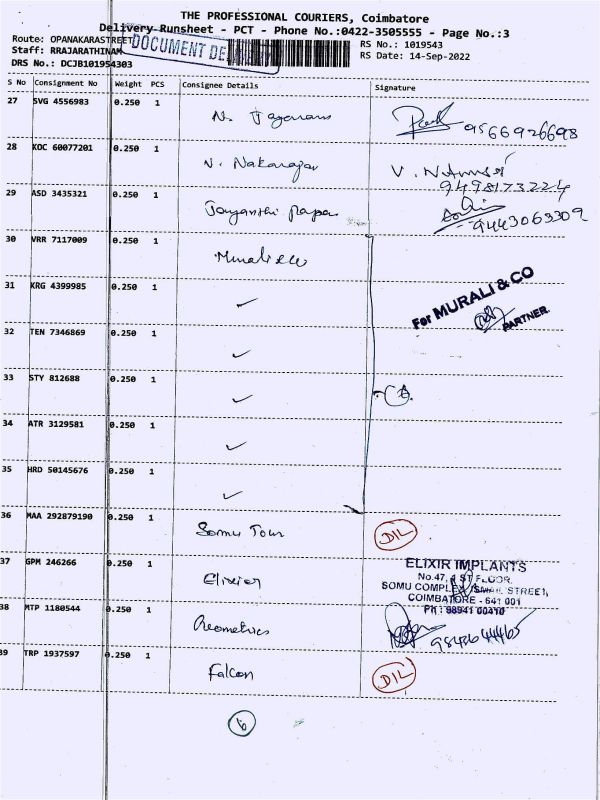 THE PROFESSIONAL COURIERS, Coimbatore
Delivery Runsheet - PCT - Phone No.:0422-3505555 - Page No.:3
Route: OPANAKARASTREET
RS No.: 1019543
DOCUMENT DE
Staff: RRAJARATHINAM
RS Date: 14-Sep-2022
DRS No.: DCJB101954303
S No Consignment No Weight PCS Consignee Details Signature
27 SVG 4556983 0.250 1 N. 9566926698
28 KOC 60077201 0.250 1 V. V.
9498173224
29 ASD 3435321 0.250 1 Jayanthi
9443063309
30 VRR 7117009 0.250 1
31 KRG 4399985 0.250 1 ✓
For MURALI & CO
PARTNER.
32 TEN 7346869 0.250 1 ✓
33 STY 812688 0.250 1 ✓
34 ATR 3129581 0.250 1 ✓
35 HRD 50145676 0.250 1 ✓
36 MAA 292879190 0.250 1 Somu Tour DIL
37 GPM 246266 0.250 1 Elixier
ELIXIR IMPLANTS
No.47, 1 ST FLOOR,
SOMU COMPLEX, ISMAIL STREET,
COIMBATORE - 641 001
PH : 98941 00410
38 MTP 1180544 0.250 1 Geometrics
39 TRP 1937597 0.250 1 Falcon DIL
6